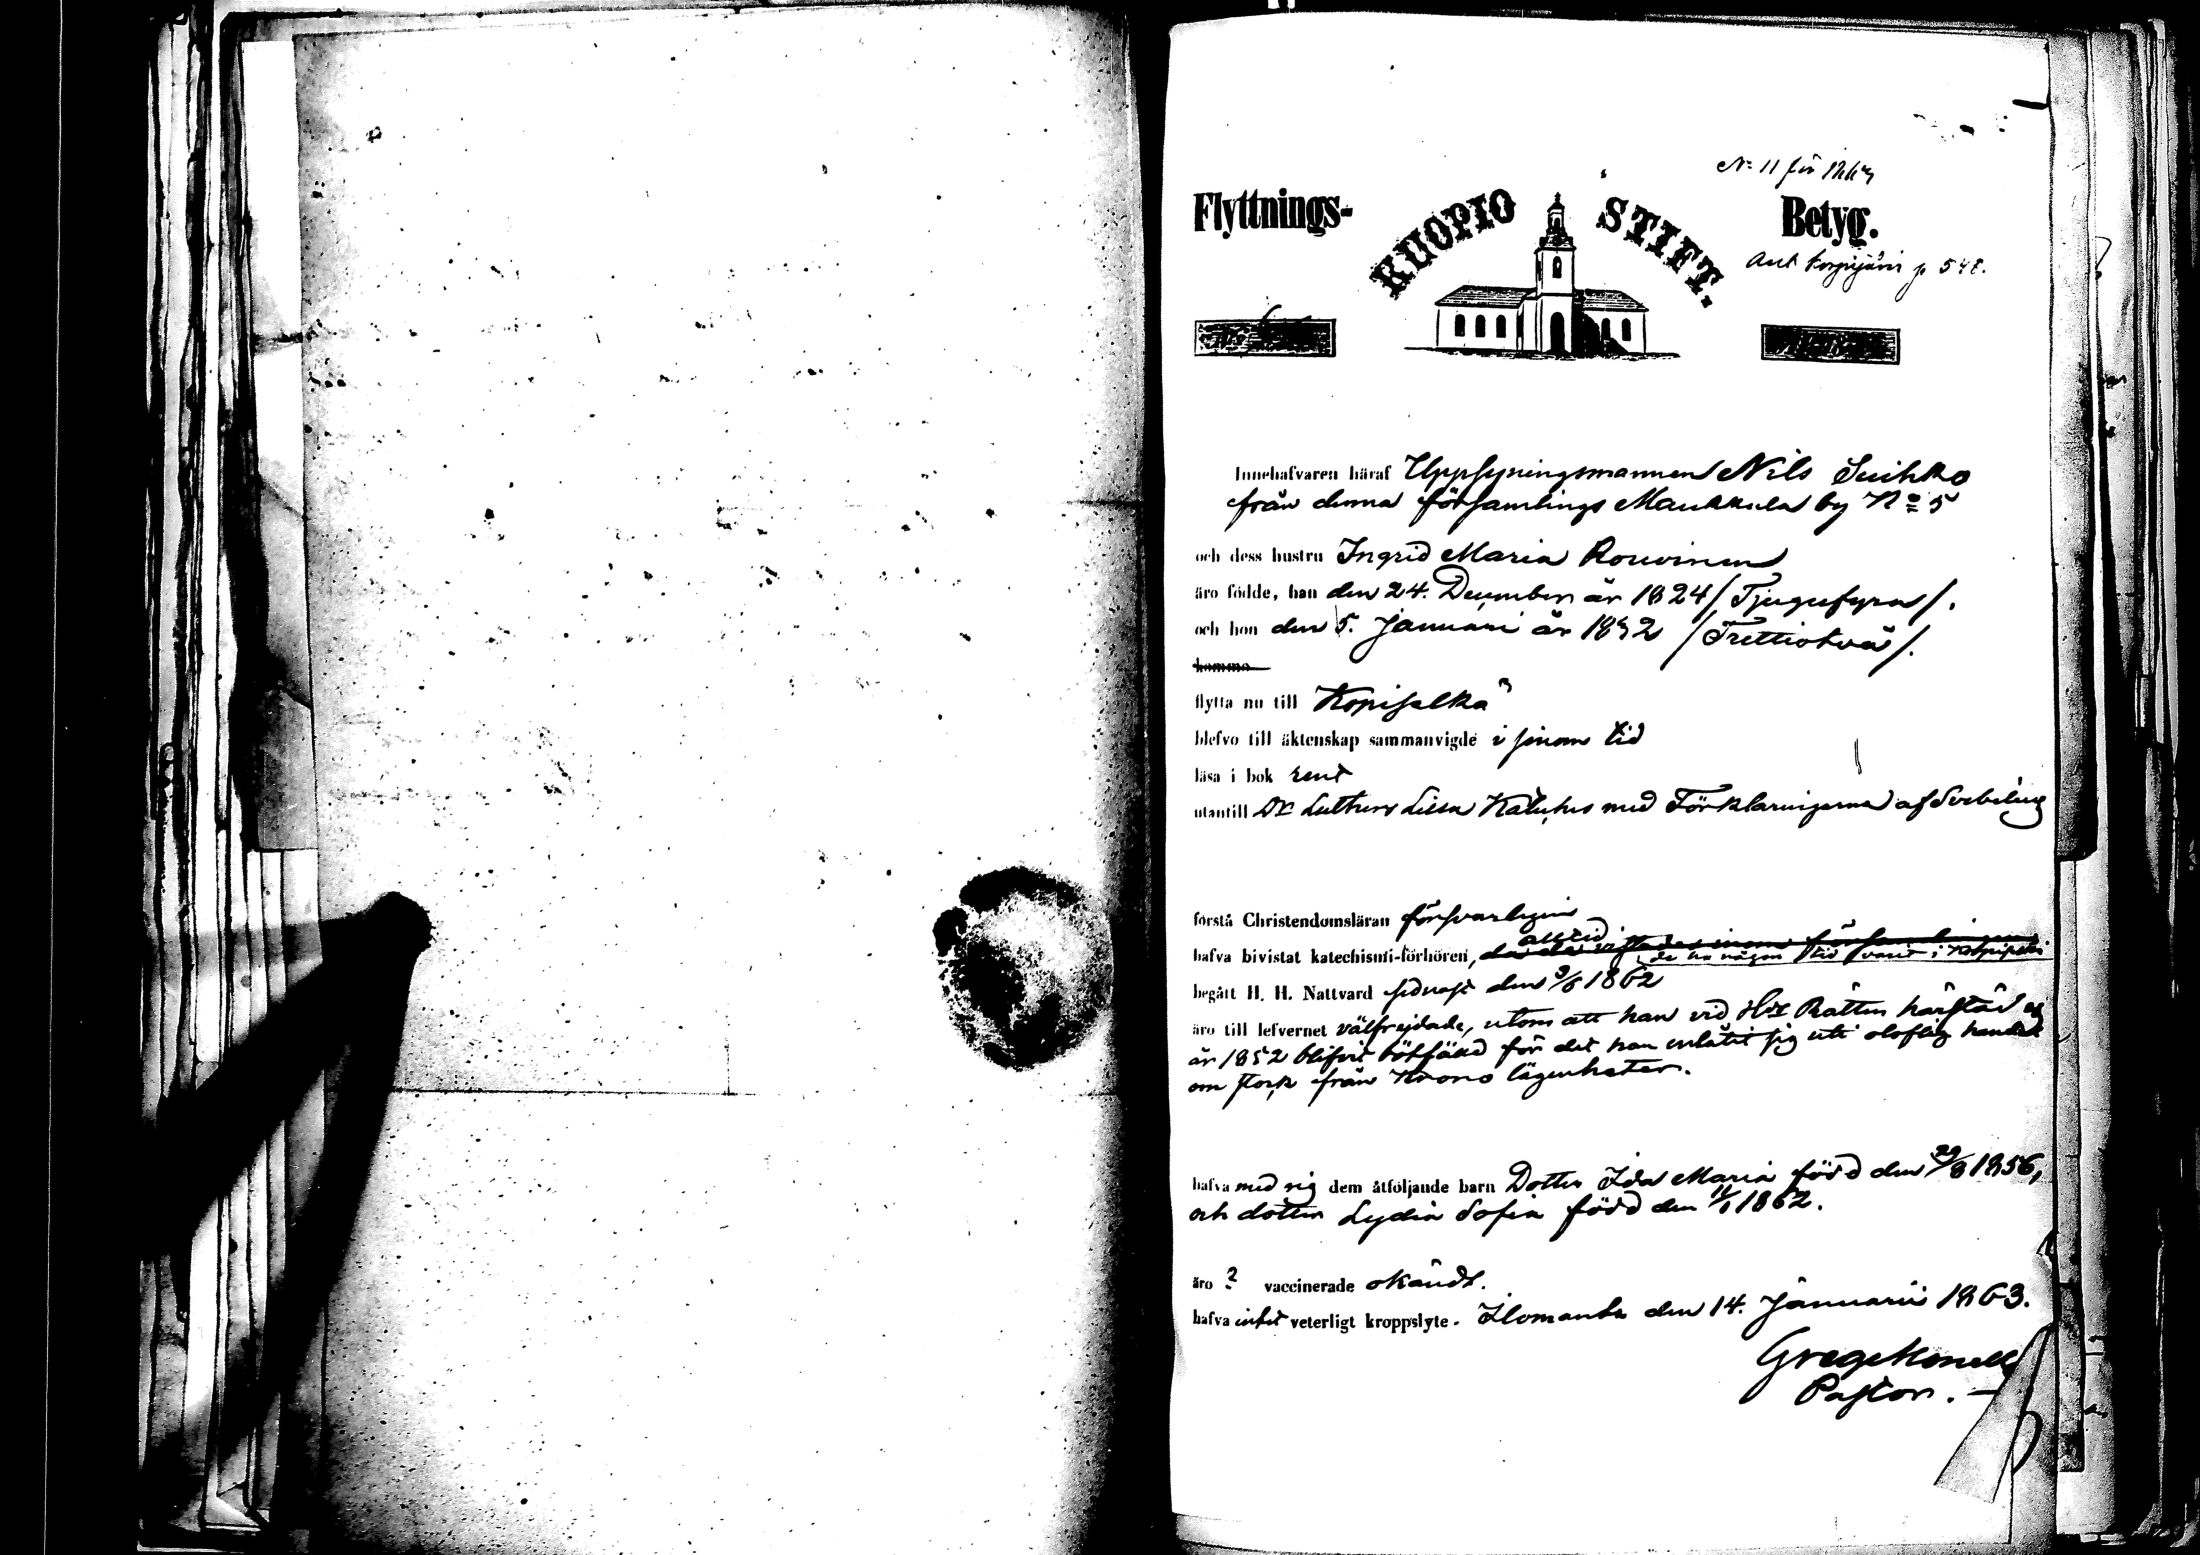 N:o 11 för 1863
Flyttnings- KUOPIO STIFT. Betyg.
Ank Korpijärvi p 548.
Innehafvaren häraf Uppsyningsmannen Nils Suihko
från denna församlings Maukkula by No 5
och dess hustru Ingrid Maria Rouvinen
äro födde, han den 24. December år 1824 /Tjugufyra/.
och hon den 5. Januari år 1832 /Trettiotvå/.
komma
flytta nu till Kopiselkä
blefvo till äktenskap sammanvigde i sinom tid
läsa i bok rent
utantill Dr Luthers Lilla Kateches med Förklaringarna af Svebelius
förstå Christendomsläran försvarligen
alltid
hafva bivistat katechismi-förhören, då de vistades inom församlingen
de ha någon tid varit i
begått H. H. Nattvard sednast den 9/6 1862
äro till lefvernet välfrejdade, utom att han vid HR Rätten härstäd
år 1852 blifvit bötfäld för det han inlåtit sig uti oloflig handel
om stock från Krono lägenheter.
hafva med sig dem åtföljande barn Dotter Ida Maria född den 29/8 1856,
och dotter Lydia Sofia född den 11/1 1862.
äro ? vaccinerade okändt.
hafva intet veterligt kroppslyte. Ilomants den 14. Januarii 1863.
Greg Monell
Pastor.